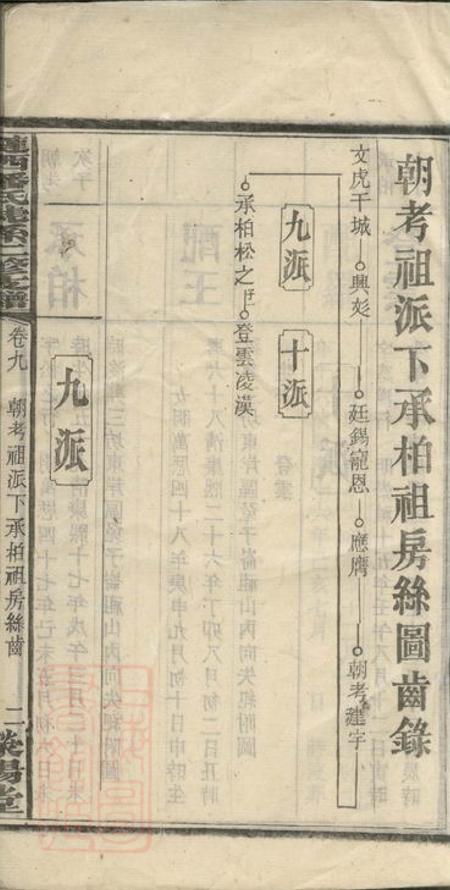 朝考祖派下承柏祖房絲圖齒錄
文虎干城 興彭 廷錫寵恩 應鷹 朝考建宇
九派 十派
承柏松之 登雲凌漢
九派
潘氏 二修支譜 卷九 朝考祖派下承柏祖房絲齒 二 滎陽堂